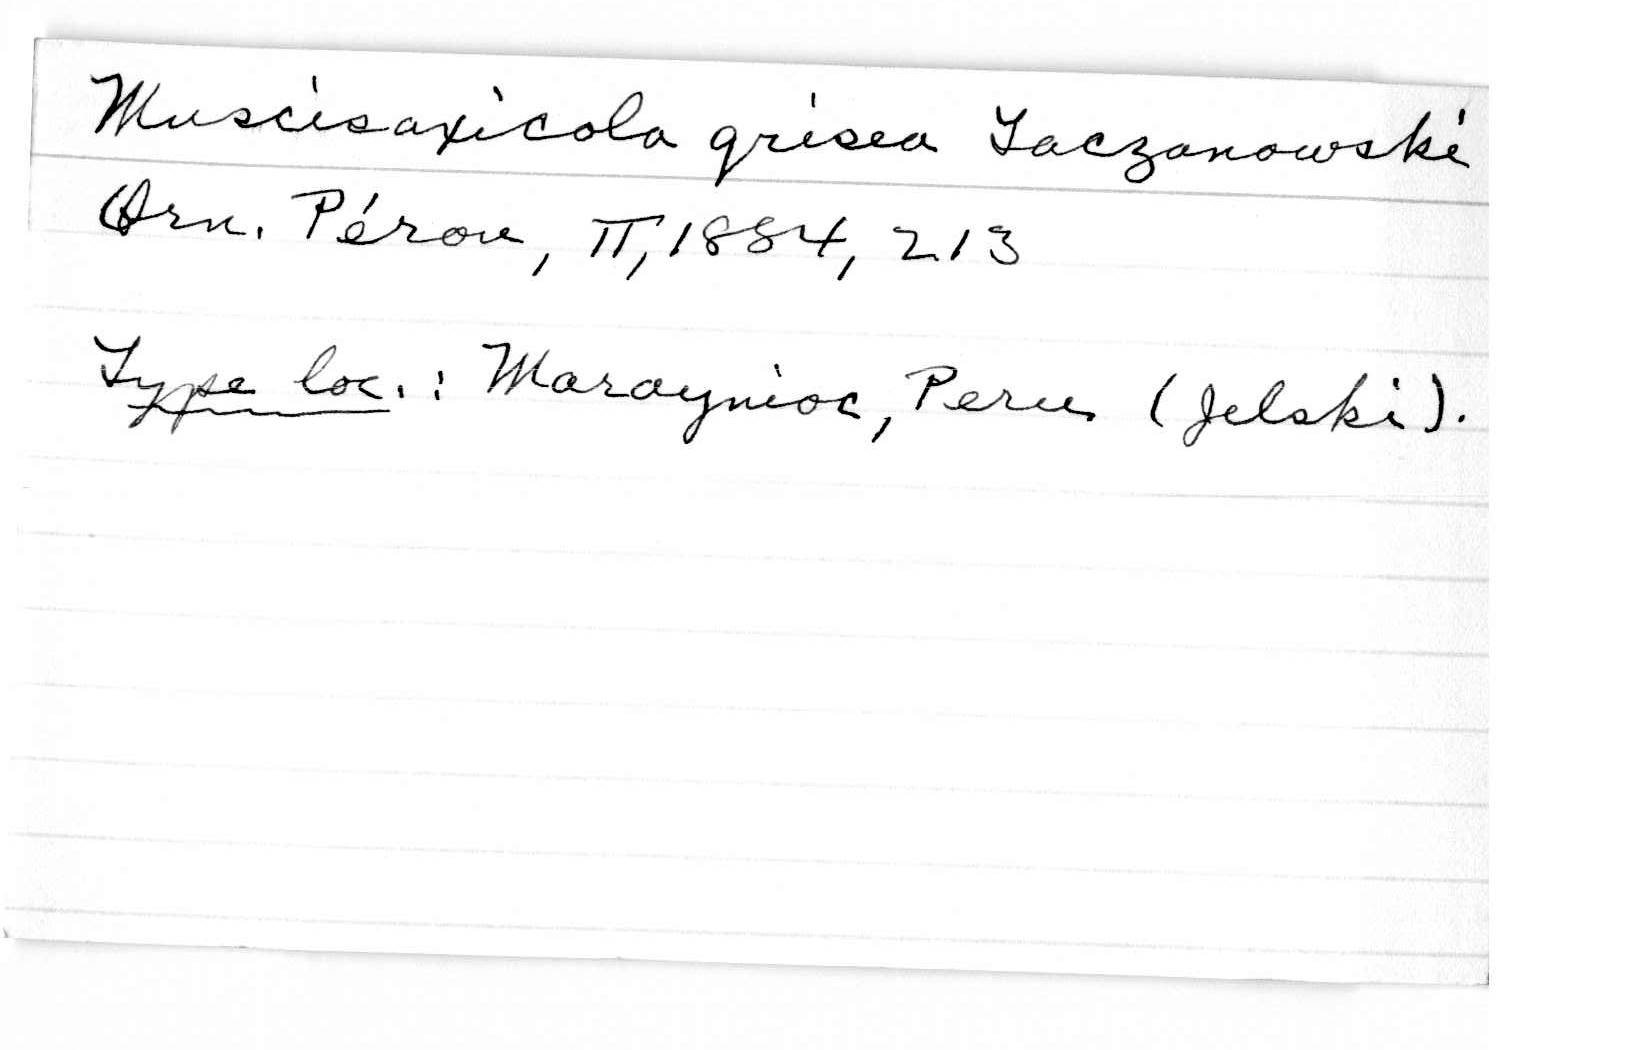 Muscisaxicola grisea Taczanowski
Orn. Pérou, II, 1884, 213
Type loc.: Maraynioc, Peru (Jelski).